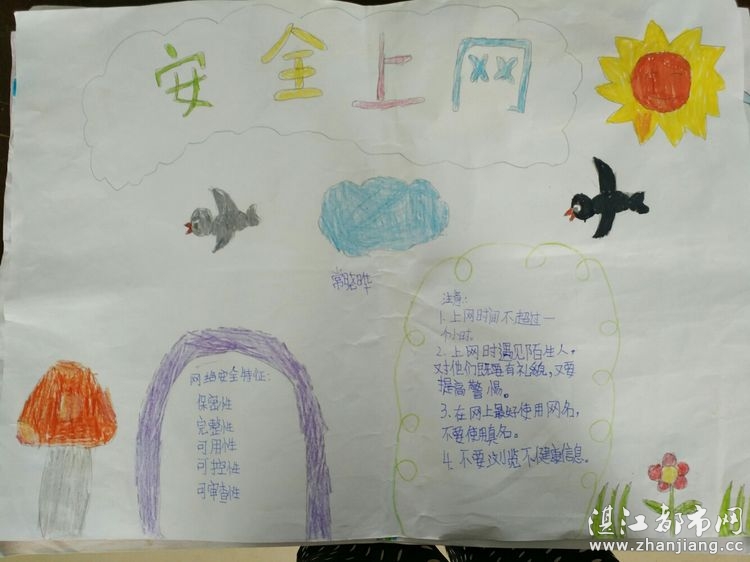 安全上网
常晓晔
网络安全特征:
保密性
完整性
可用性
可控性
可审查性
注意:
1.上网时间不超过一
个小时。
2.上网时遇见陌生人,
对他们既要有礼貌,又要
提高警惕。
3.在网上最好使用网名,
不要使用真名。
4.不要浏览不健康信息。
湛江都市网
www.zhanjiang.cc